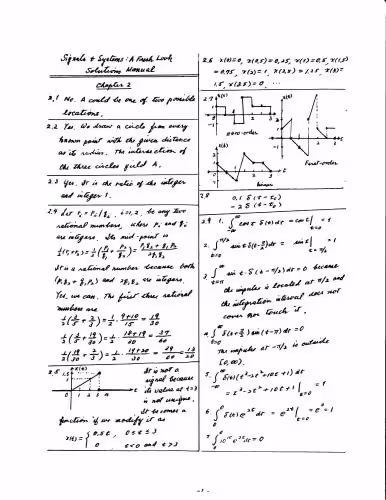 Signals & Systems: A Fresh Look
Solutions Manual
Chapter 2
2.1 No. A could be one of two possible
locations.
2.2 Yes. We draw a circle from every
known point with the given distance
as its radius. The intersection of
the three circles yield A.
2.3 Yes. It is the ratio of the integer
and integer 1.
2.4 Let r_i = p_i/q_i, i=1,2, be any two
rational numbers, where p_i and q_i
are integers. Its mid-point is
1/2 (r_1+r_2) = 1/2 (p_1/q_1 + p_2/q_2) = (p_1q_2 + q_1p_2)/(2q_1q_2)
It is a rational number because both
(p_1q_2 + q_1p_2) and 2q_1q_2 are integers.
Yes, we can. The first three rational
numbers are
1/2 (3/5 + 2/3) = 1/2 · (9+10)/15 = 19/30
1/2 (3/5 + 19/30) = 1/2 · (18+19)/30 = 37/60
1/2 (19/30 + 2/3) = 1/2 · (19+20)/30 = 39/60 = 13/20
2.5 x(t)
1.5
It is not a
signal because
its value at t=3
is not unique.
It becomes a
function if we modify it as
x(t) = { 0.5t, 0≤t≤3
0 t<0 and t>3
2.6 x(0)=0, x(0.5)=0.25, x(1)=0.5, x(1.5)
=0.75, x(2)=1, x(2.5)=1.25, x(3)=
1.5, x(3.5)=0 ...
2.7 x(t)
zero-order
x(t)
First-order
x(t)
linear
2.8 0.1 δ(t - t_0)
-2 δ(t - t_0)
2.9 1. ∫_{-∞}^{∞} cos t δ(t) dt = cos t|_{t=0} = 1
2. ∫_{t=0}^{π/2} sin t δ(t-π/2) dt = sin t|_{t=π/2} = 1
3. ∫ sin t · δ(t-π/2) dt = 0 because
the impulse is located at π/2 and
the integration interval does not
cover nor touch it.
4. ∫_{t=0}^{∞} δ(t+π/2) sin(t-π) dt = 0
The impulse at -π/2 is outside
[0,∞).
5. ∫_{-∞}^{∞} δ(t)(t³-2t²+10t+1) dt
= t³-2t²+10t+1|_{t=0} = 1
6. ∫_{0}^{0} δ(t) e^{2t} dt = e^{2t}|_{t=0} = e^0 = 1
7. dt = 0
-1-